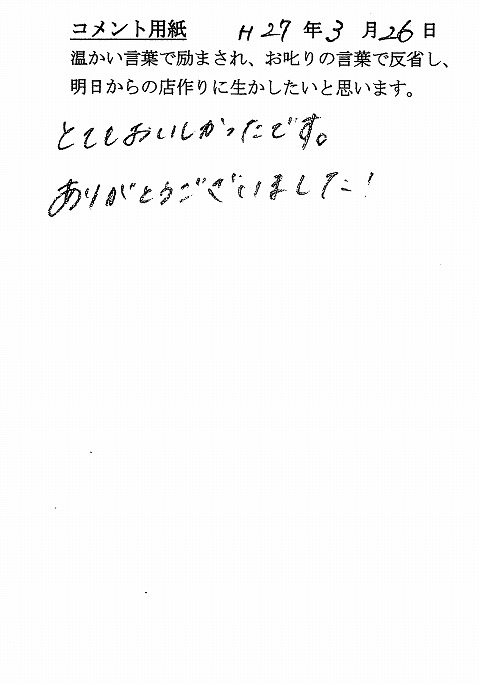 コメント用紙 H27年3月26日
温かい言葉で励まされ、お叱りの言葉で反省し、
明日からの店作りに生かしたいと思います。
とてもおいしかったです。
ありがとうございました!